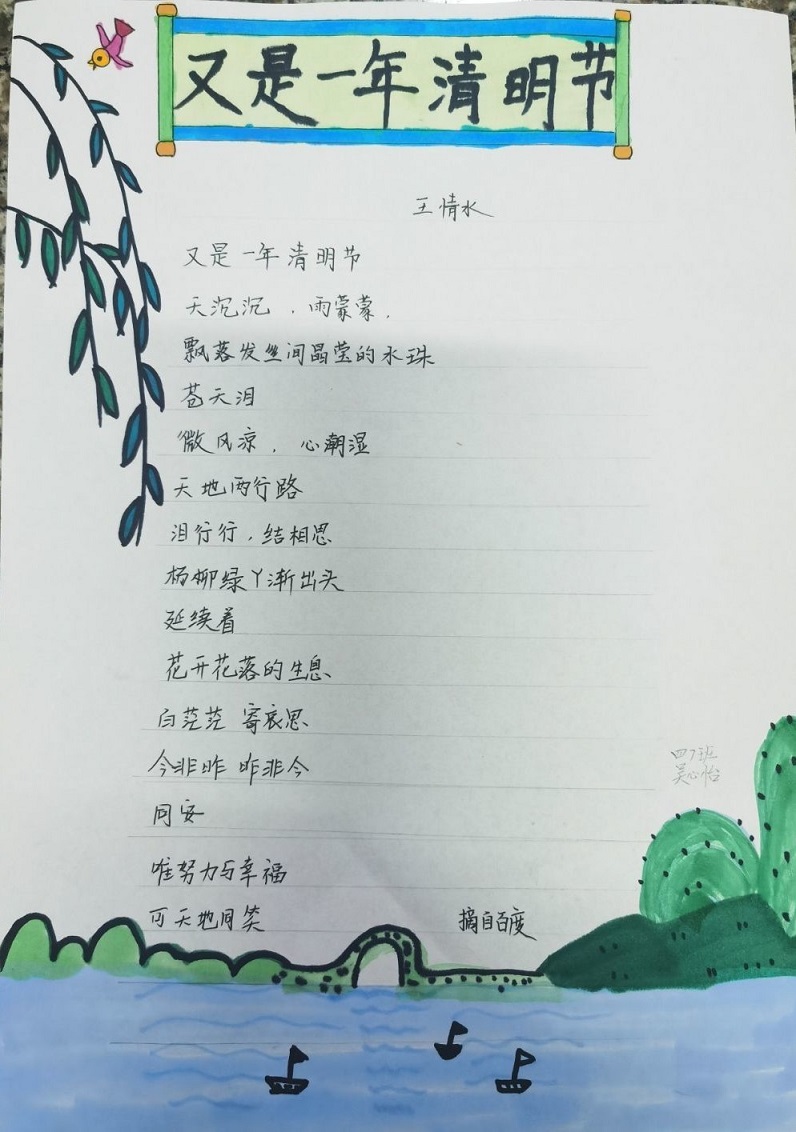 又是一年清明节
王情水
又是一年清明节
天沉沉，雨蒙蒁，
飘落发丝间晶莹的水珠
苍天泪
微风凉，心潮湿
天地两行路
泪行行，结相思
杨柳绿丫渐出头
延续着
花开花落的生息
白茫茫 寄哀思
今非昨 昨非今
同安
唯努力与幸福
可天地同笑
摘自百度
四7班
吴心怡